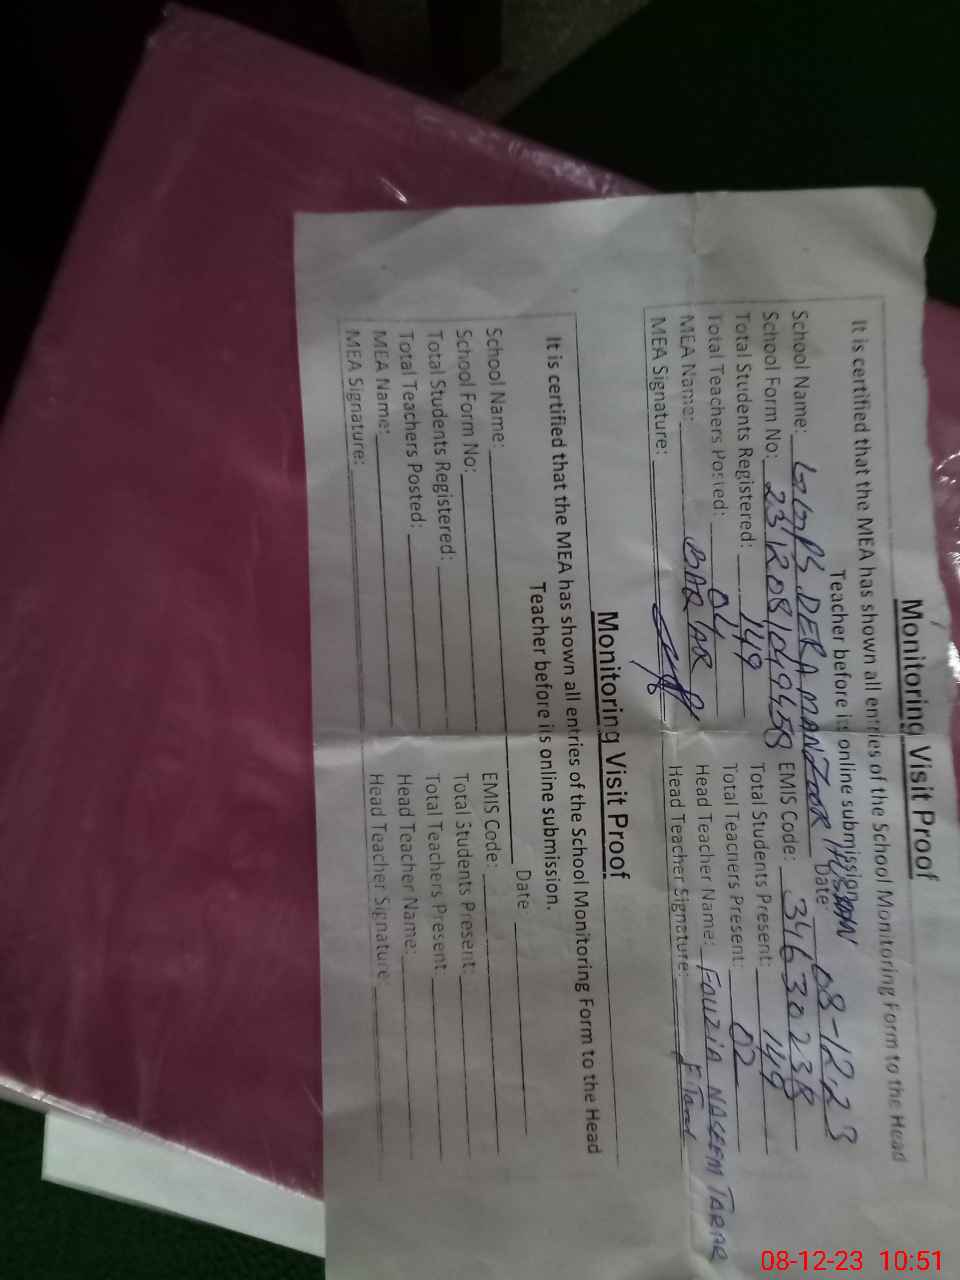 Monitoring Visit Proof
It is certified that the MEA has shown all entries of the School Monitoring Form to the Head
Teacher before its online submission.
School Name: GGPS DERA MANZOOR HUSSAIN Date: 08-12-23
School Form No: EMIS Code: 34630238
Total Students Registered: 149 Total Students Present: 149
Total Teachers Posted: 04 Total Teachers Present: 02
MEA Name: BABAR Head Teacher Name: FOUZIA NASEEM TARAR
MEA Signature: Head Teacher Signature: F. Tarar
Monitoring Visit Proof
It is certified that the MEA has shown all entries of the School Monitoring Form to the Head
Teacher before its online submission.
School Name: Date
School Form No: EMIS Code:
Total Students Registered: Total Students Present:
Total Teachers Posted: Total Teachers Present:
MEA Name: Head Teacher Name:
MEA Signature: Head Teacher Signature:
08-12-23 10:51